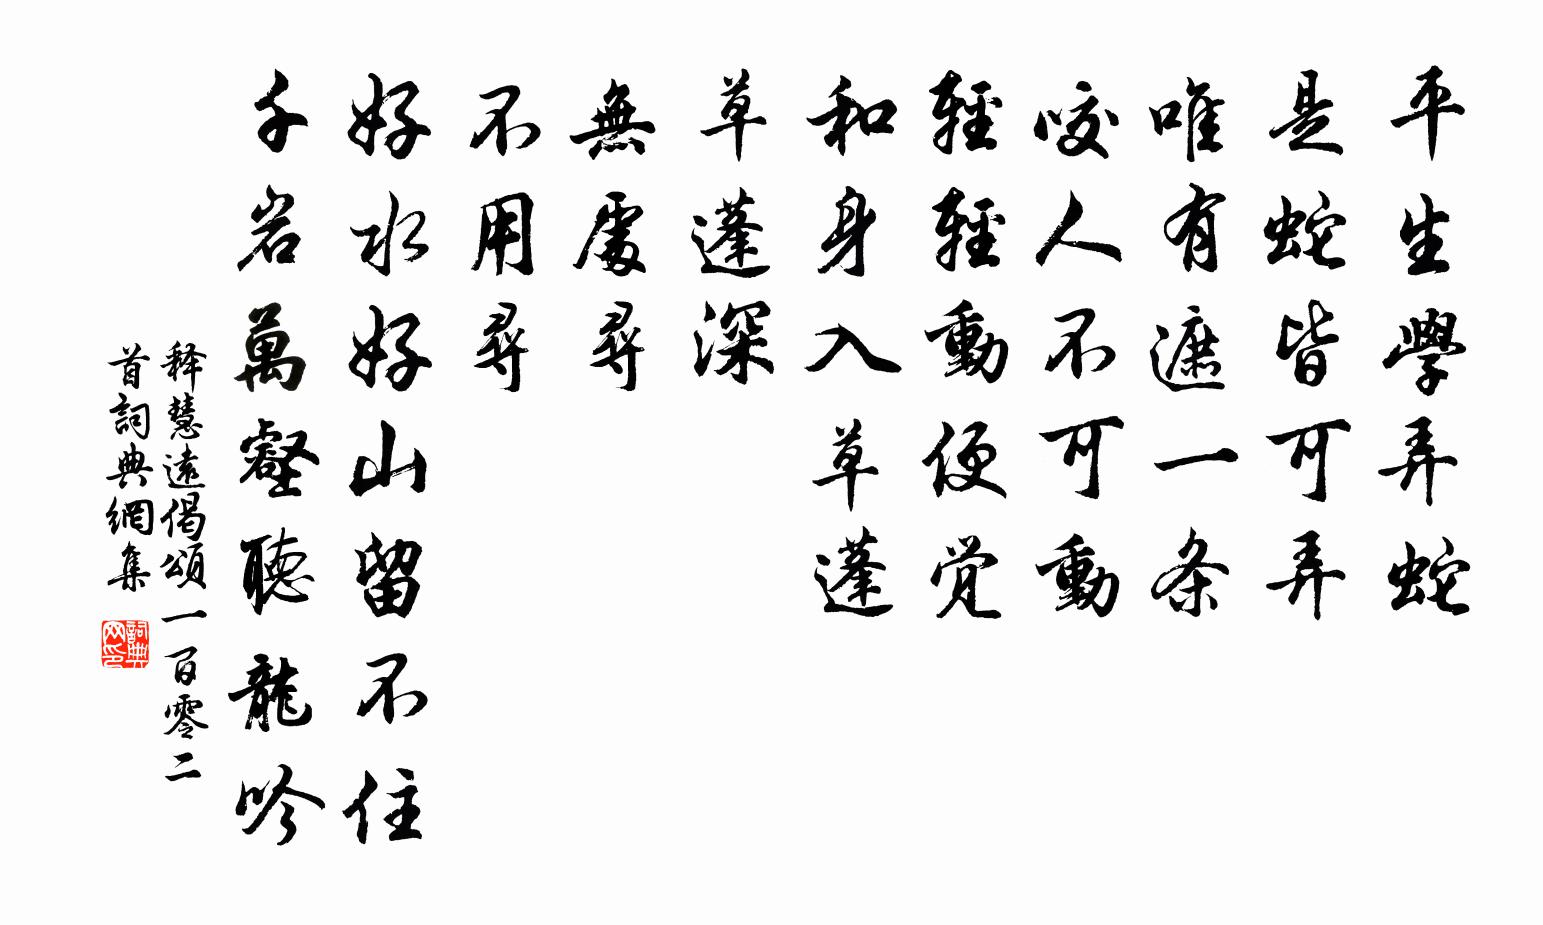 平生學弄蛇
是蛇皆可弄
唯有遮一条
咬人不可動
輕輕動便觉
和身入 草蓬
草蓬深
無處尋
不用尋
好水好山留不住
千岩萬壑聽龍吟
释慧遠偈頌一百零二
首詞典網集
詞典
网印